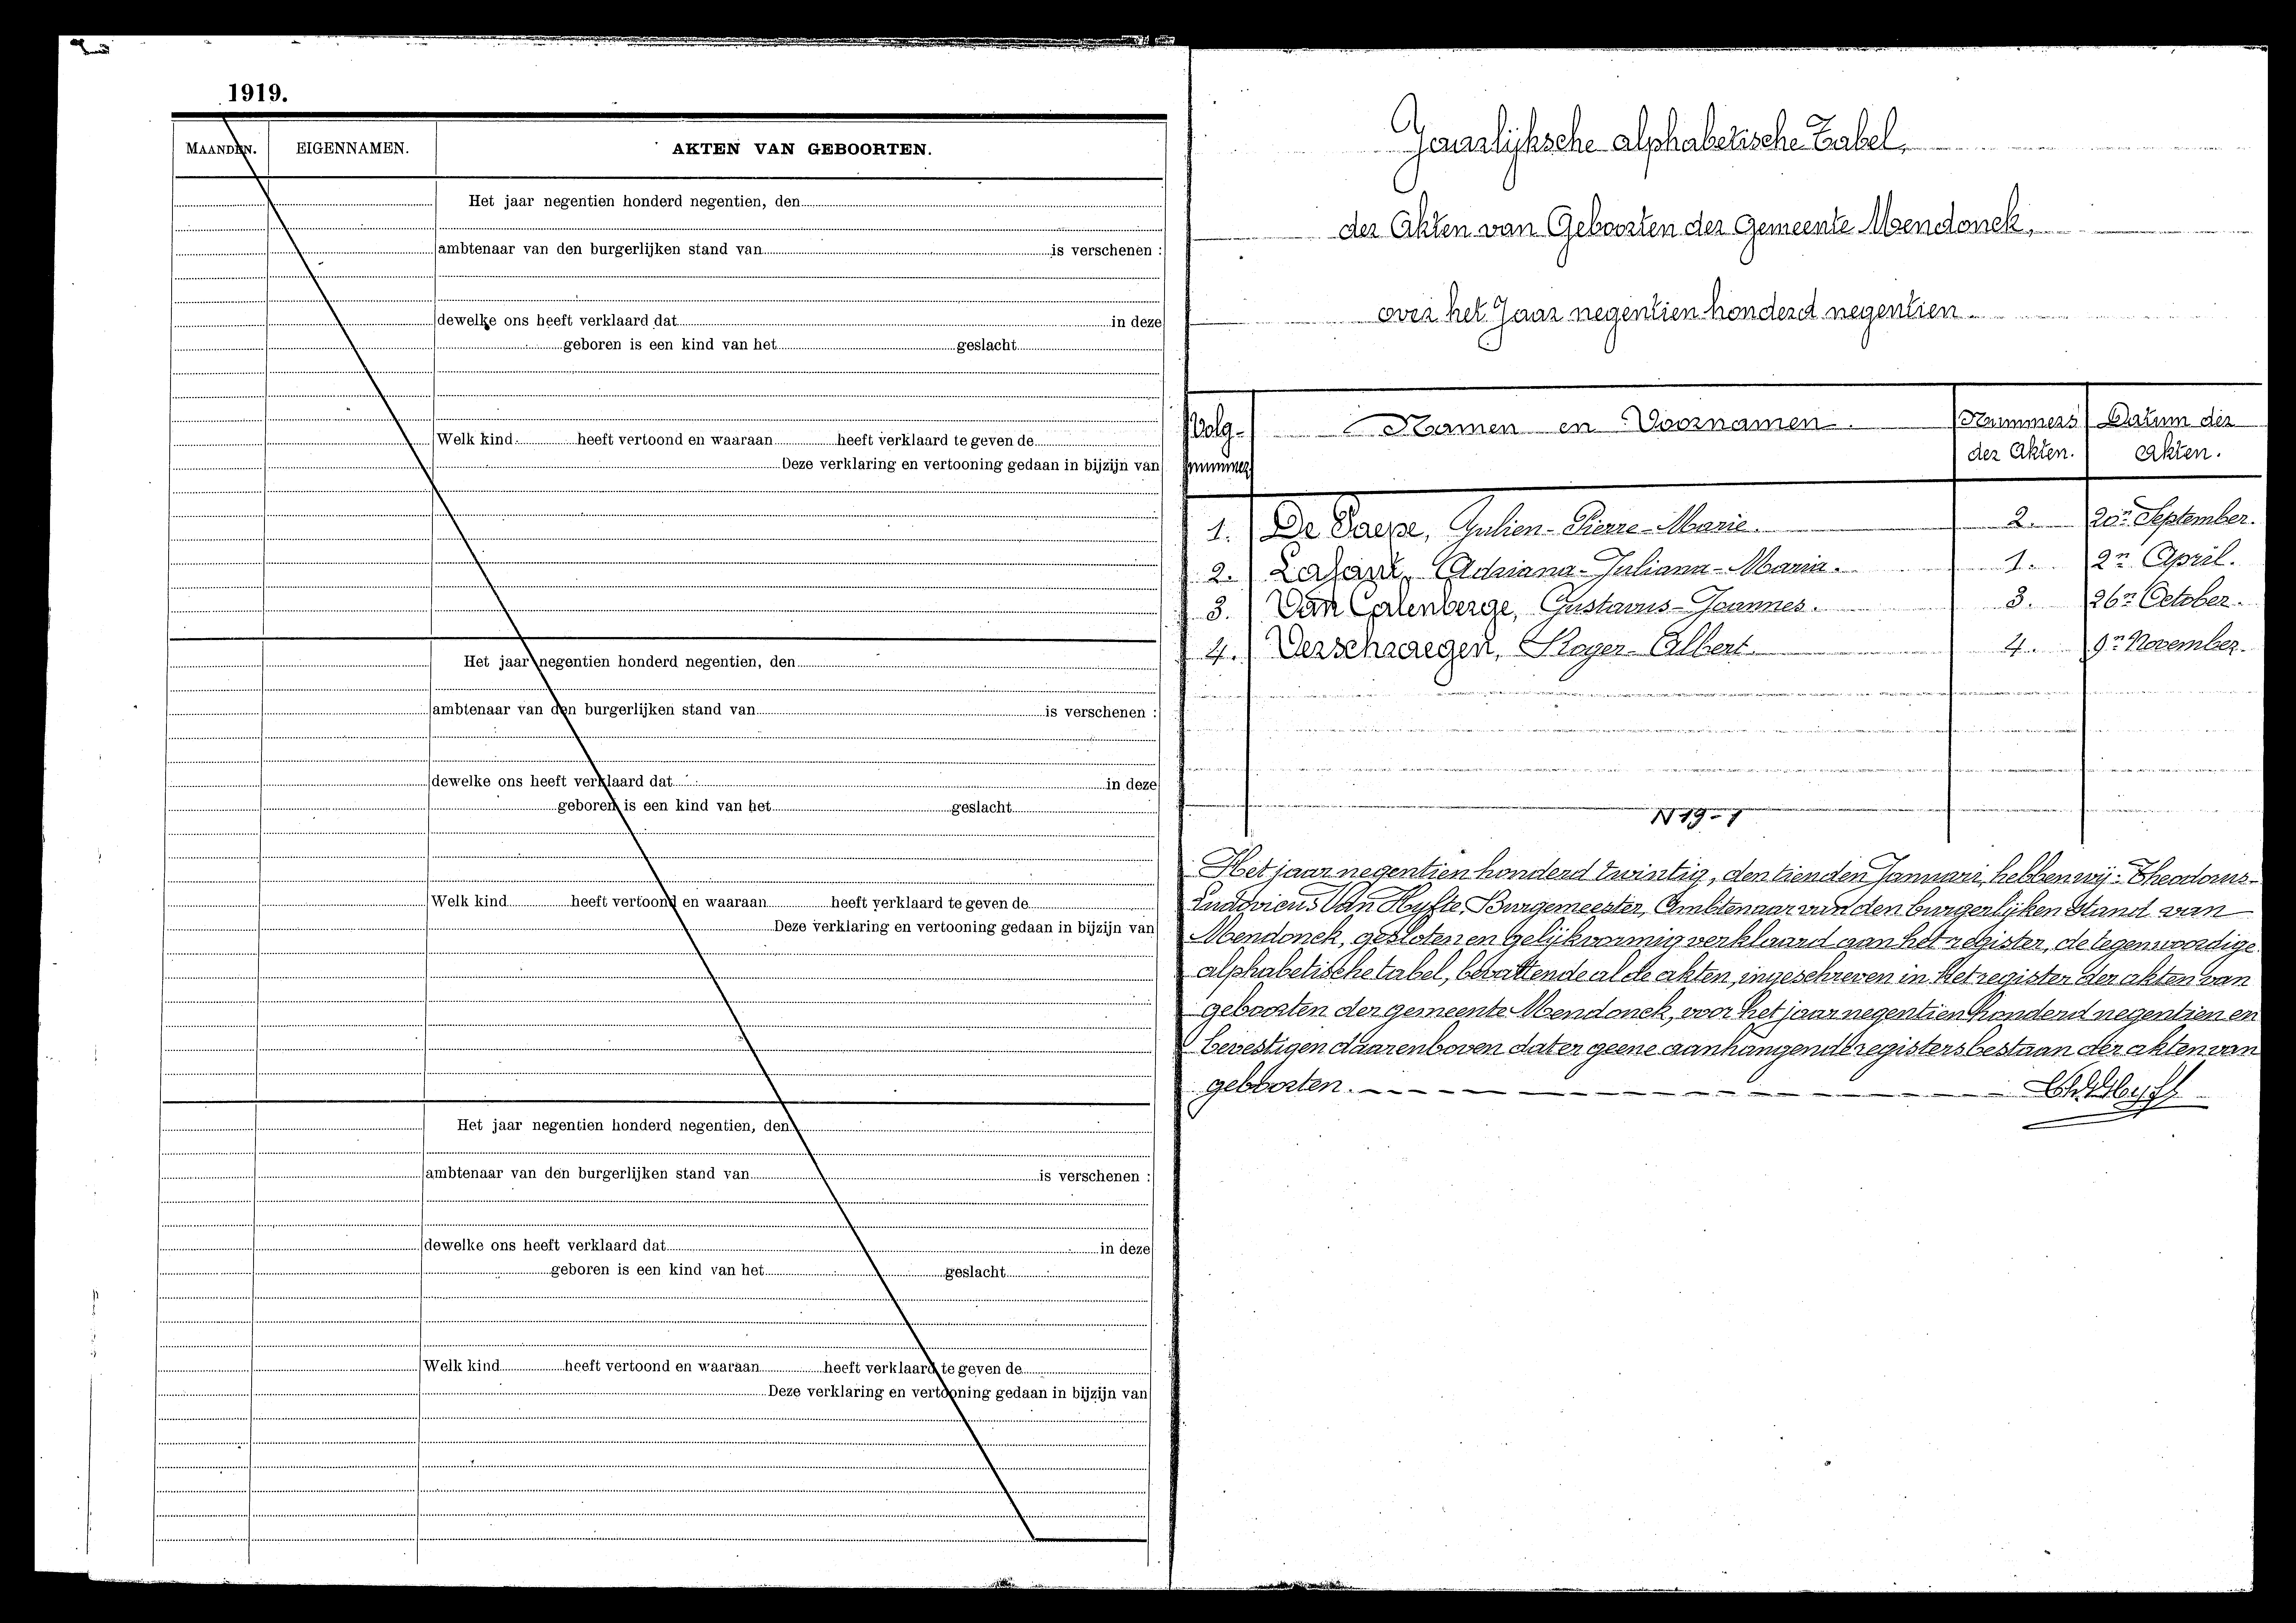 1919.
MAANDEN. EIGENNAMEN. AKTEN VAN GEBOORTEN.
Het jaar negentien honderd negentien, den
ambtenaar van den burgerlijken stand van is verschenen :
dewelke ons heeft verklaard dat in deze
geboren is een kind van het geslacht
Welk kind heeft vertoond en waaraan heeft verklaard te geven de
Deze verklaring en vertooning gedaan in bijzijn van
Het jaar negentien honderd negentien, den
ambtenaar van den burgerlijken stand van is verschenen :
dewelke ons heeft verklaard dat in deze
geboren is een kind van het geslacht
Welk kind heeft vertoond en waaraan heeft verklaard te geven de
Deze verklaring en vertooning gedaan in bijzijn van
Het jaar negentien honderd negentien, den
ambtenaar van den burgerlijken stand van is verschenen :
dewelke ons heeft verklaard dat in deze
geboren is een kind van het geslacht
Welk kind heeft vertoond en waaraan heeft verklaard te geven de
Deze verklaring en vertooning gedaan in bijzijn van
Jaarlijksche alphabetische Tabel,
der Akten van Geboorten der Gemeente Mendonck,
over het Jaar negentien honderd negentien.
Volg- Namen en Voornamen. Nummers Datum der
nummer der Akten. Akten.
1. De Paepe, Julien-Pierre-Marie. 2. 20n September.
2. Lafaut, Adriana-Juliana-Maria. 1. 2n April.
3. Van Calenberge, Gustavus-Joannes. 3. 26n October.
4. Verschraegen, Roger-Albert. 4. 9n November.
N 19-1
Het jaar negentien honderd twintig, den tienden Januari, hebben wij: Theodorus-
Ludovicus Van Hyfte, Burgemeester, Ambtenaar van den burgerlijken stand van
Mendonck, gesloten en gelijkvormig verklaard aan het register, de tegenwoordige
alphabetische tabel, bevattende al de akten, ingeschreven in het register der akten van
geboorten der gemeente Mendonck, voor het jaar negentien honderd negentien en
bevestigen daarenboven dat er geene aanhangende registers bestaan der akten van
geboorten.